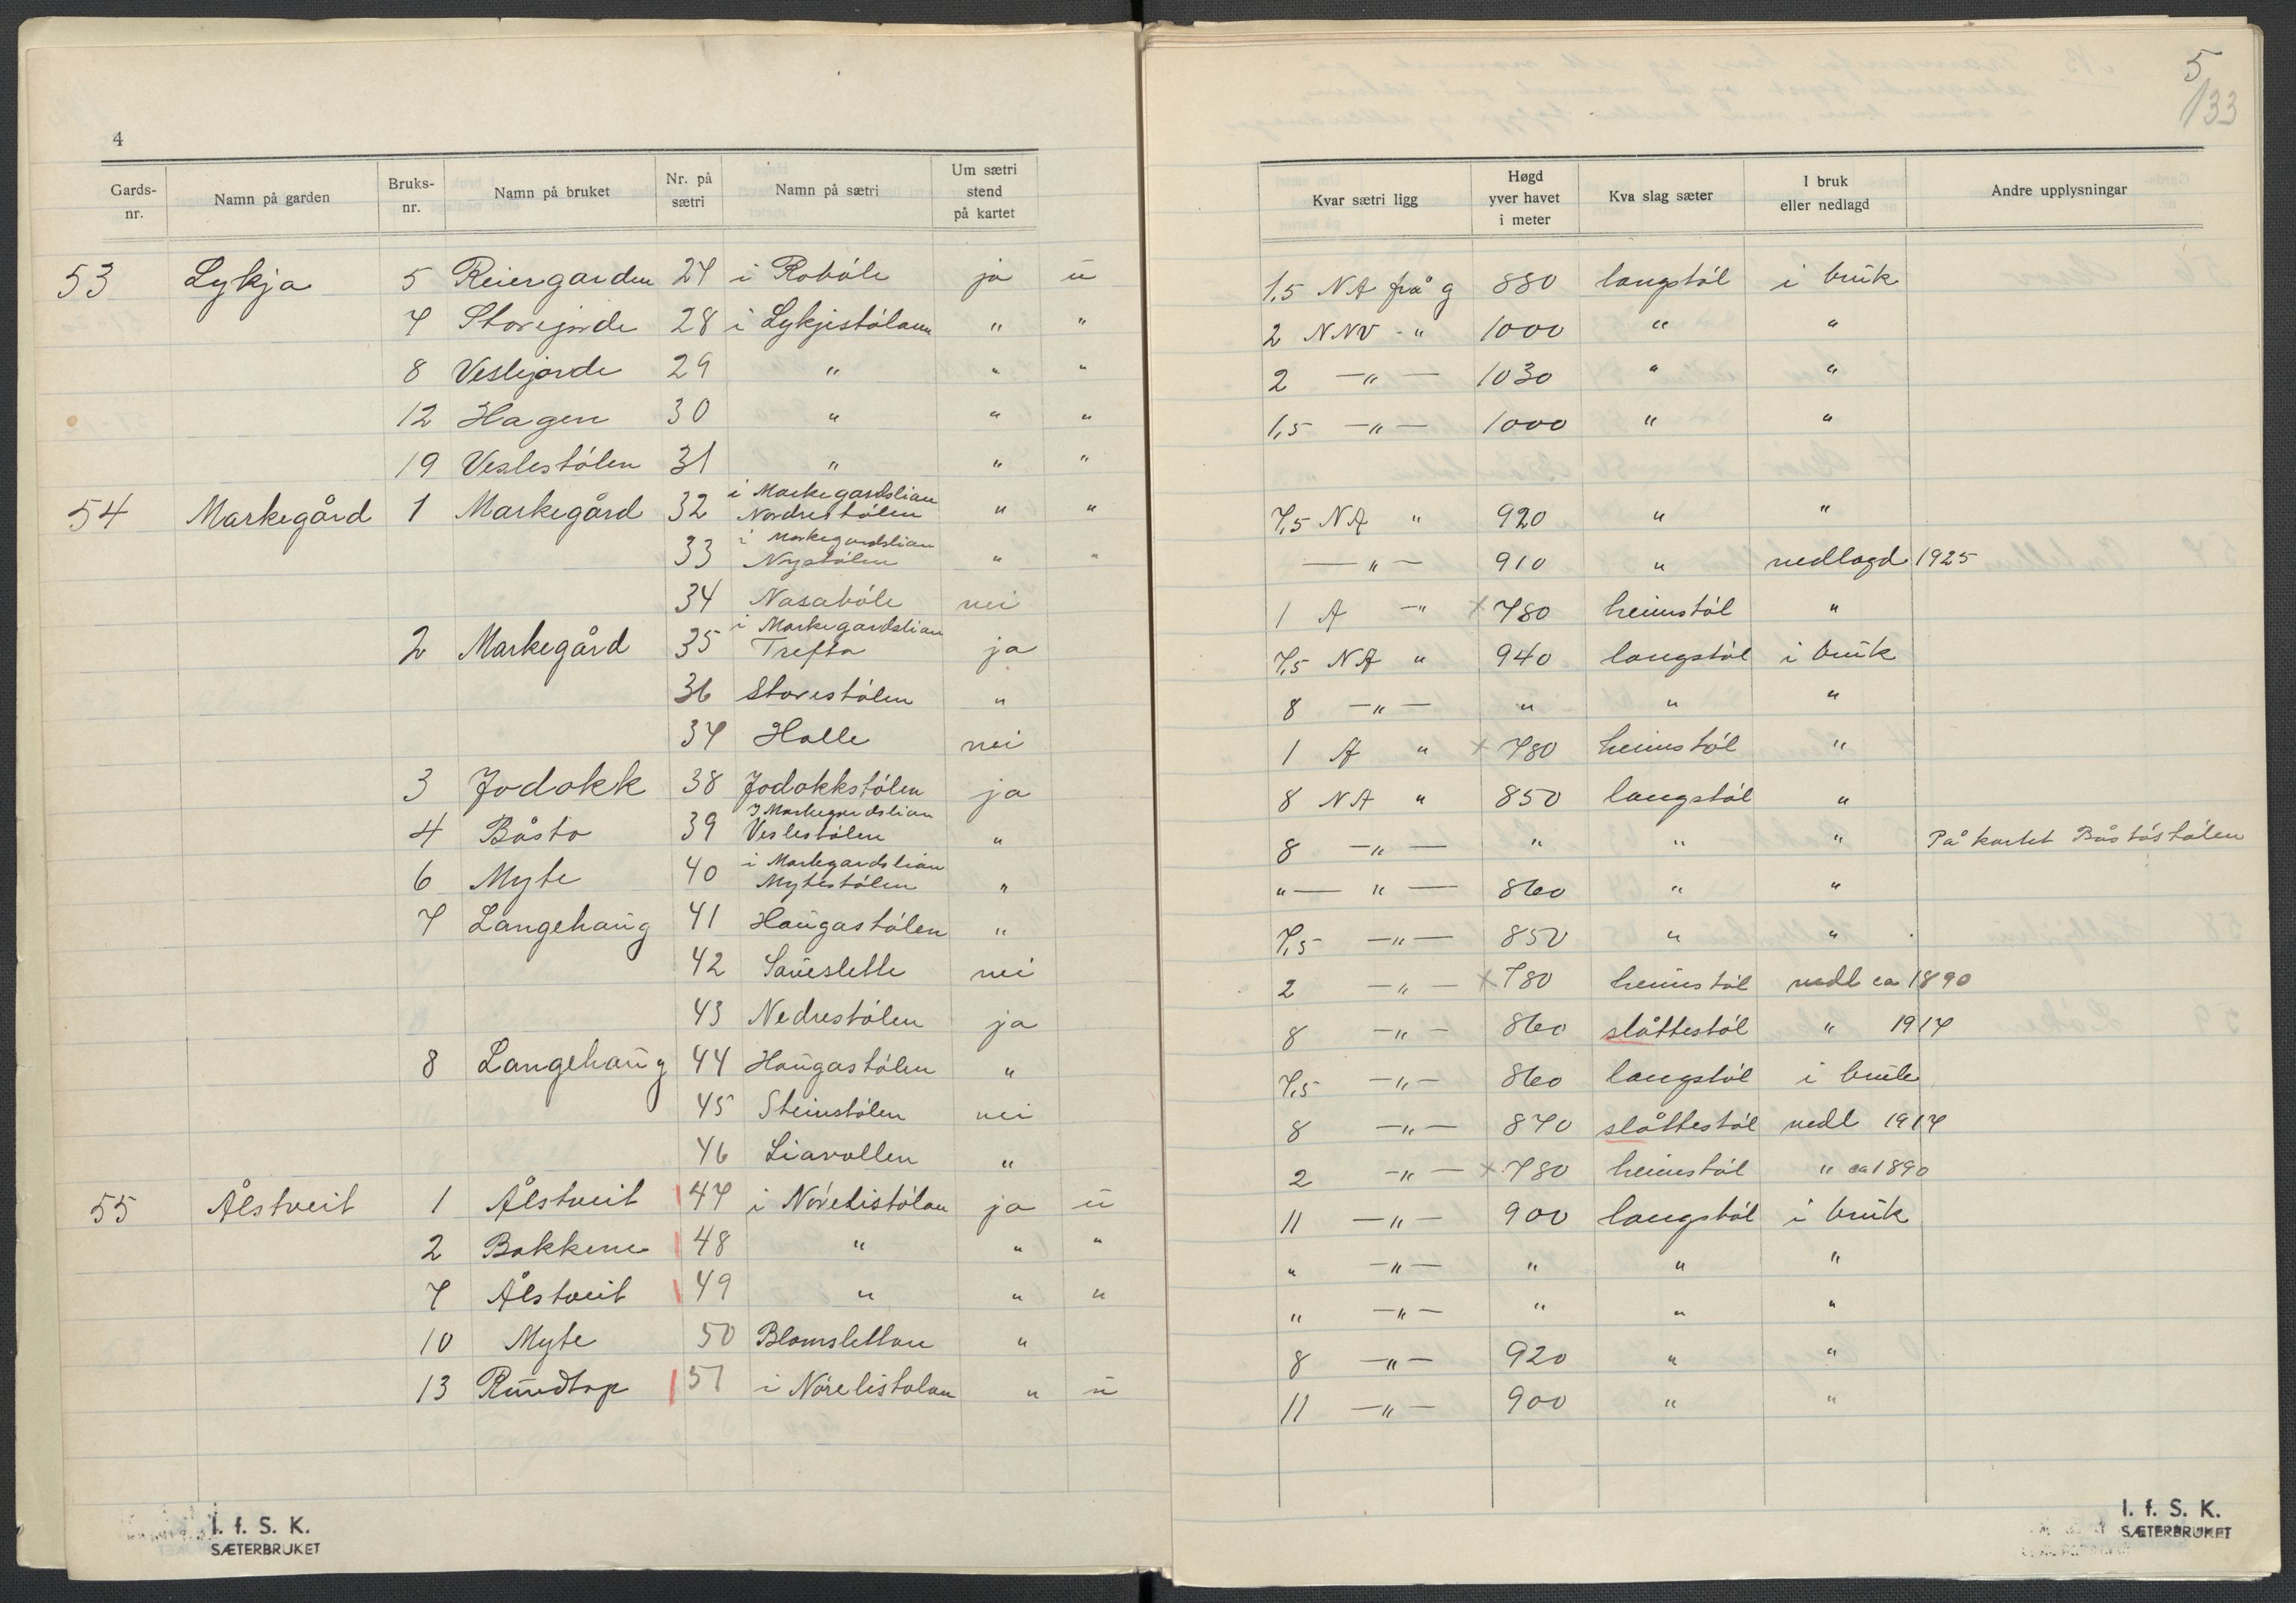 4
Gards-nr. Namn på garden Bruks-nr. Namn på bruket Nr. på sætri Namn på sætri Um sætri stend på kartet
53 Lykja 5 Reiergarden 27 i Robóle ja u
7 Storejorde 28 i Lykjestólann " "
8 Veslejorde 29 " " "
12 Hagen 30 " " "
19 Veslestólen 31 " " "
54 Markegård 1 Markegård 32 i Markegardslian Nordrestólen " "
33 i Markegardslian Nystólen " "
34 Nasabóle nei
2 Markegård 35 i Markegardslian Trefta ja
36 Storestólen "
37 Halle nei
3 Jodokk 38 Jodokkstólen ja
4 Båsto 39 I Markegardslian Veslestólen "
6 Myte 40 i Markegardslian Mytestólen "
7 Langehaug 41 Haugastólen "
42 Saueslette nei
43 Nedrestólen ja
8 Langehaug 44 Haugastólen "
45 Steinstólen nei
46 Liavollen "
55 Ålstveit 1 Ålstveit 47 i Nórelistólan ja u
2 Bakkene 48 " " "
7 Ålstveit 49 " " "
10 Myte 50 Blomslettan "
13 Rundtop 51 i Nórelistolan " u
I. f. S. K.
SÆTERBRUKET
5
133
Kvar sætri ligg Høgd yver havet i meter Kva slag sæter I bruk eller nedlagd Andre upplysningar
1,5 NA frå g 880 langstól i bruk
2 NNV - " 1000 " "
2 — " — 1030 " "
1,5 — " — 1000 " "
7,5 NA " 920 " "
— " — 910 " nedlagd 1925
1 A - " x 780 heimstól "
7,5 NA " 940 langstól i bruk
8 — " — " " "
1 A " x 780 heimstól "
8 NA " 850 langstól "
8 — " — " " " På kartet Båstóstólen
" — " — 860 " "
7,5 — " — 850 " "
2 — " — x 780 heimstól nedl ca 1890
8 — " — 860 slåttestól " 1917
7,5 — " — 860 langstól i bruk
8 — " — 870 slåttestól nedl 1917
2 — " — x 780 heimstól " ca 1890
11 — " — 900 langstól i bruk
" — " — " " "
" — " — " " "
8 — " — 920 " "
11 — " — 900 " "
I. f. S. K.
SÆTERBRUKET